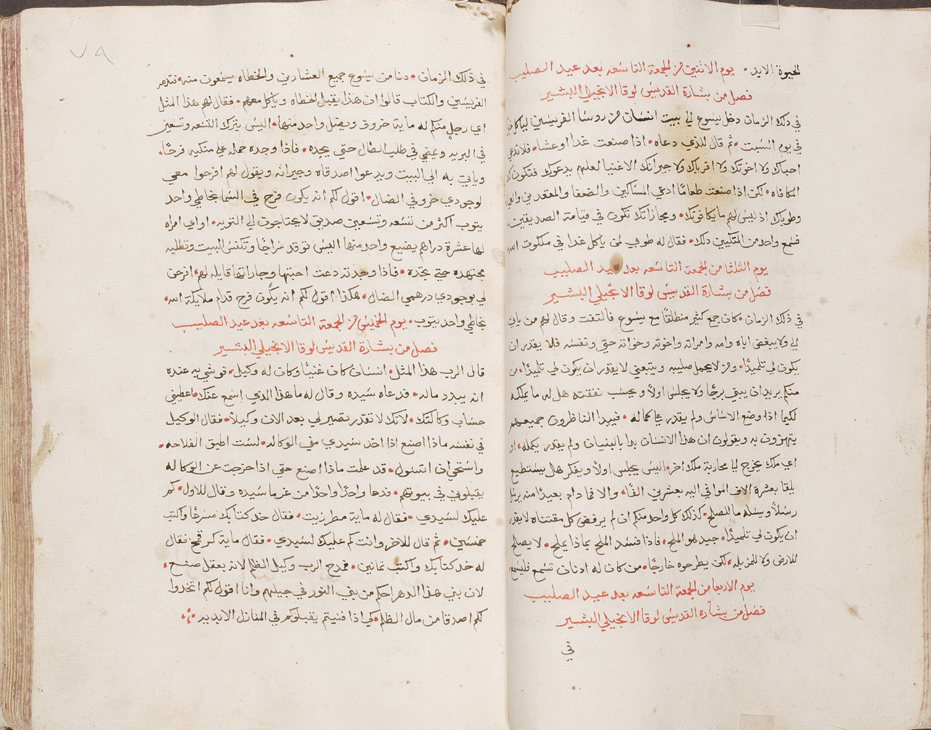 لحيوة الابد • يوم الاثنين من الجمعة التاسعه بعد عيد الصليب
فصل من بشارة القديس لوقا الانجيلي البشير
في ذلك الزمان دخل يسوع الي بيت انسان من روسا الفريسيين لياكل
في يوم السبت • ثم قال للذي دعاه • اذا صنعت غدا او عشا • فلا تدعي
احباك ولا اخوتك ولا اقرباك ولا جيرانك الاغنيا لعلهم يدعوك فتكون لك
المكافاه • لكن اذا صنعت طعامًا ادعي المساكين والضعفا والمقعدين والعمي
وطوباك اذ ليس لهم ما يكافوك • ومجازاتك تكون في قيامة الصديقين
فسمع واحد من المتكيين ذلك • فقال له طوبي لمن ياكل غدا في ملكوت الله
يوم الثلثا من الجمعة التاسعه بعد عيد الصليب
فصل من بشارة القديس لوقا الانجيلي البشير
في ذلك الزمان • كان جمع كثير منطلقًا مع يسوع فالتفت وقال لهم من ياتي
لي ولا يبغض اباه وامه وامراته واخوته وخواته حتي ونفسه فلا يقدر ان
يكون لي تلميذًا • ومن لا يحمل صليبه ويتبعني لا يقدر ان يكون لي تلميذًا • من
منكم يريد ان يبني برجًا ولا يجلس اولاً ويحسب نفقته هل له ما يكمله
لكيما اذا وضع الاساس ولم يقدر علي كماله • فيبدا الناظرون جميعهم
يتهزون به ويقولون ان هذا الانسان بدا بالبنيان ولم يقدر يكمله • او
اي ملك يخرج الي محاربة ملك اخر • اليس يجلس اولاً ويفكر هل يستطيع
يلقا بعشرة الاف الموافي اليه بعشرين الفًا • والا فما دام بعيدًا منه يرسل
رسلاً ويسله ما للصلح • كذلك كل واحد منكم ان لم يرفض كل مقتناه لا يقدر
ان يكون لي تلميذًا • جيد هو الملح • فاذا فسد الملح بماذا يملح • لا يصلح
للارض ولا للمزبله • لكن يطرحوه خارجًا • من كان له اذنان تسمع فليسمع
يوم الاربعا من الجمعة التاسعه بعد عيد الصليب
فصل من بشارة القديس لوقا الانجيلي البشير
في
٧٩
في ذلك الزمان • دنا من يسوع جميع العشارين والخطاه يسمعون منه • فتذمر
الفريسيين والكتاب قالوا ان هذا يقبل الخطاه وياكل معهم • فقال لهم هذا المثل
اي رجل منكم له ماية خروف ويضل واحد منها • اليس يترك التسعه وتسعين
في البريه ويمضي في طلب الضال حتي يجده • فاذا وجده حمله علي منكبيه فرحًا •
وياتي به الي البيت ويدعوا اصدقاه وجيرانه ويقول لهم افرحوا معي
لوجودي خروفي الضال • اقول لكم انه يكون فرح في السما بخاطي واحد
يتوب اكثر من تسعه وتسعين صديق لا يحتاجون الي التوبه • او اي امراه
لها عشرة دراهم يضيع واحد منها اليس توقد سراجًا وتكنس البيت وتطلبه
مجتهده حتي تجده • فاذا وجدته دعت احبتها وجاراتها قايله لهم • افرحن
لي بوجودي درهمي الضال • هكذا اقول لكم انه يكون فرح قدام ملايكة الله •
بخاطي واحد يتوب • يوم الخميس من الجمعة التاسعه بعد عيد الصليب
فصل من بشارة القديس لوقا الانجيلي البشير
قال الرب هذا المثل • انسان كان غنيًا وكان له وكيل • فوشي به عنده
انه يبدد ماله • فدعاه سيده وقال له ما هذا الذي اسمع عنك • اعطيني
حساب وكالتك • لانك لا تقدر تصير لي بعد الان وكيلاً • فقال الوكيل
في نفسه ماذا اصنع اذا اخد سيدي مني الوكاله • لست اطيق الفلاحه •
واستحي ان اتسول • قد علمت ماذا اصنع حتي اذا خرجت عن الوكاله
يقبلوني في بيوتهم • فدعا واحدًا واحدًا من غرما سيده وقال للاول • كم
عليك لسيدي • فقال له ماية مطر زيت • فقال خد كتابك مسرعًا واكتب
خمسين • ثم قال للاخر وانت كم عليك لسيدي • فقال ماية كر قمح فقال
له خد كتابك واكتب تمانين • فمدح الرب وكيل الظلم لانه بعقل صنع •
لان بني هذا الدهر احكم من بني النور في جيلهم وانا اقول لكم اتخدوا
لكم اصدقا من مال الظلم • لكي اذا فنيتم يقبلوكم في المظال الابديه •